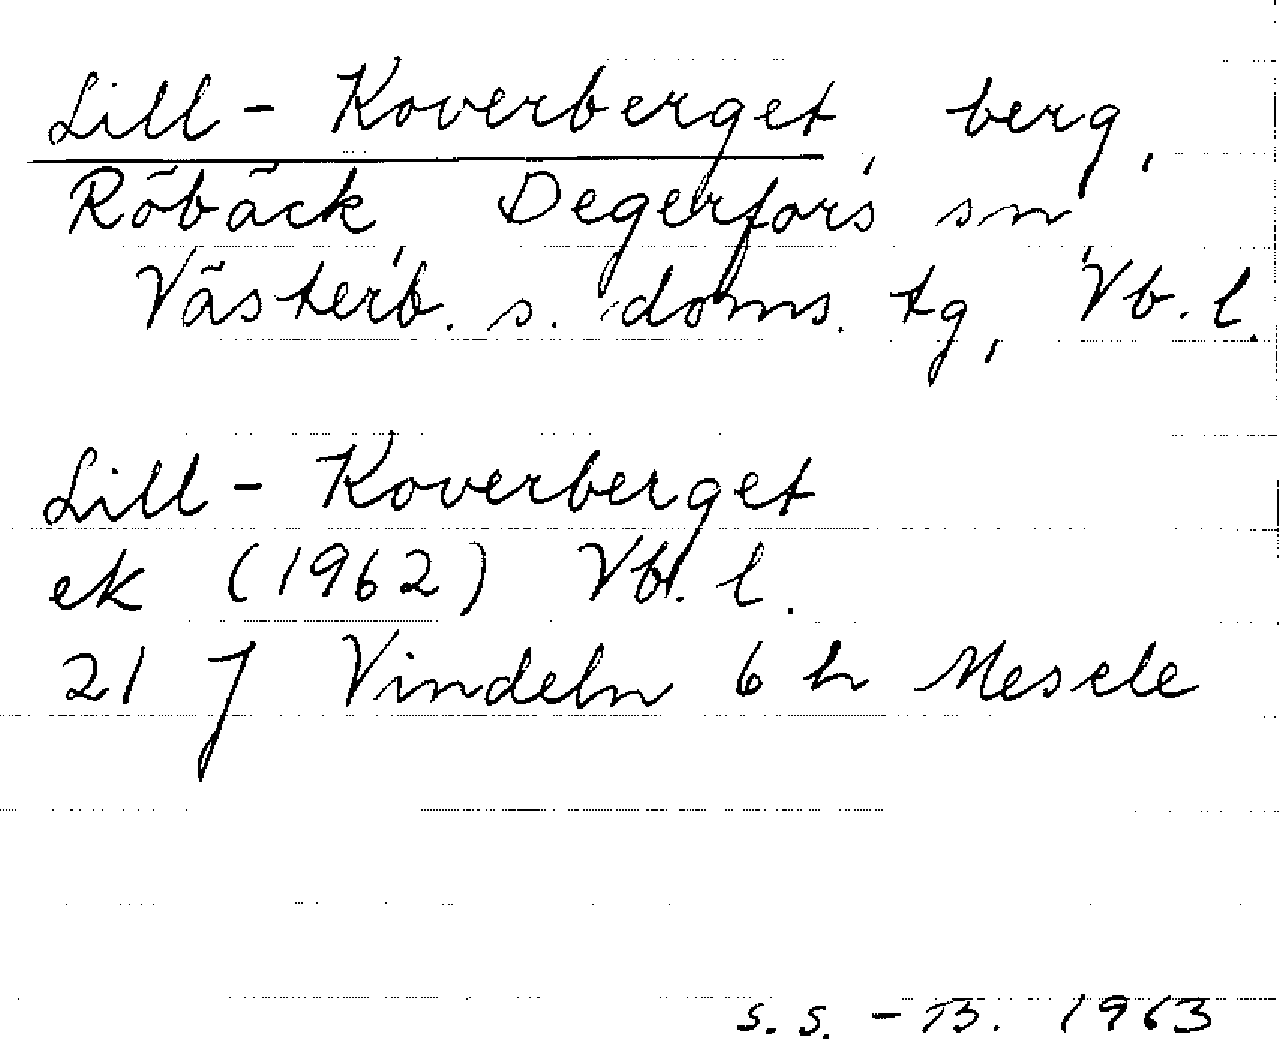 Lill-Koverberget, berg,
Röbäck, Degerfors sn,
Västerb. s. doms. tg, Vb. l.
Lill-Koverberget
ek (1962) Vb. l.
21 J Vindeln 6 h Mesele
S. S. - B. 1963